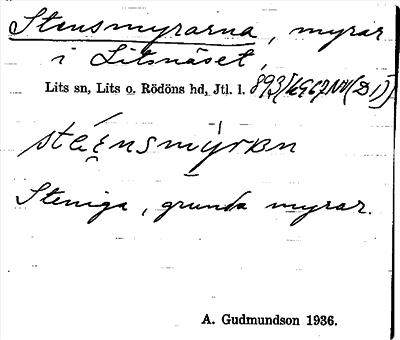 Stensmyrarna, myrar
i Litsnäset,
Lits sn, Lits o. Rödöns hd, Jtl. l.
Steniga, grunda myrar.
A. Gudmundson 1936.